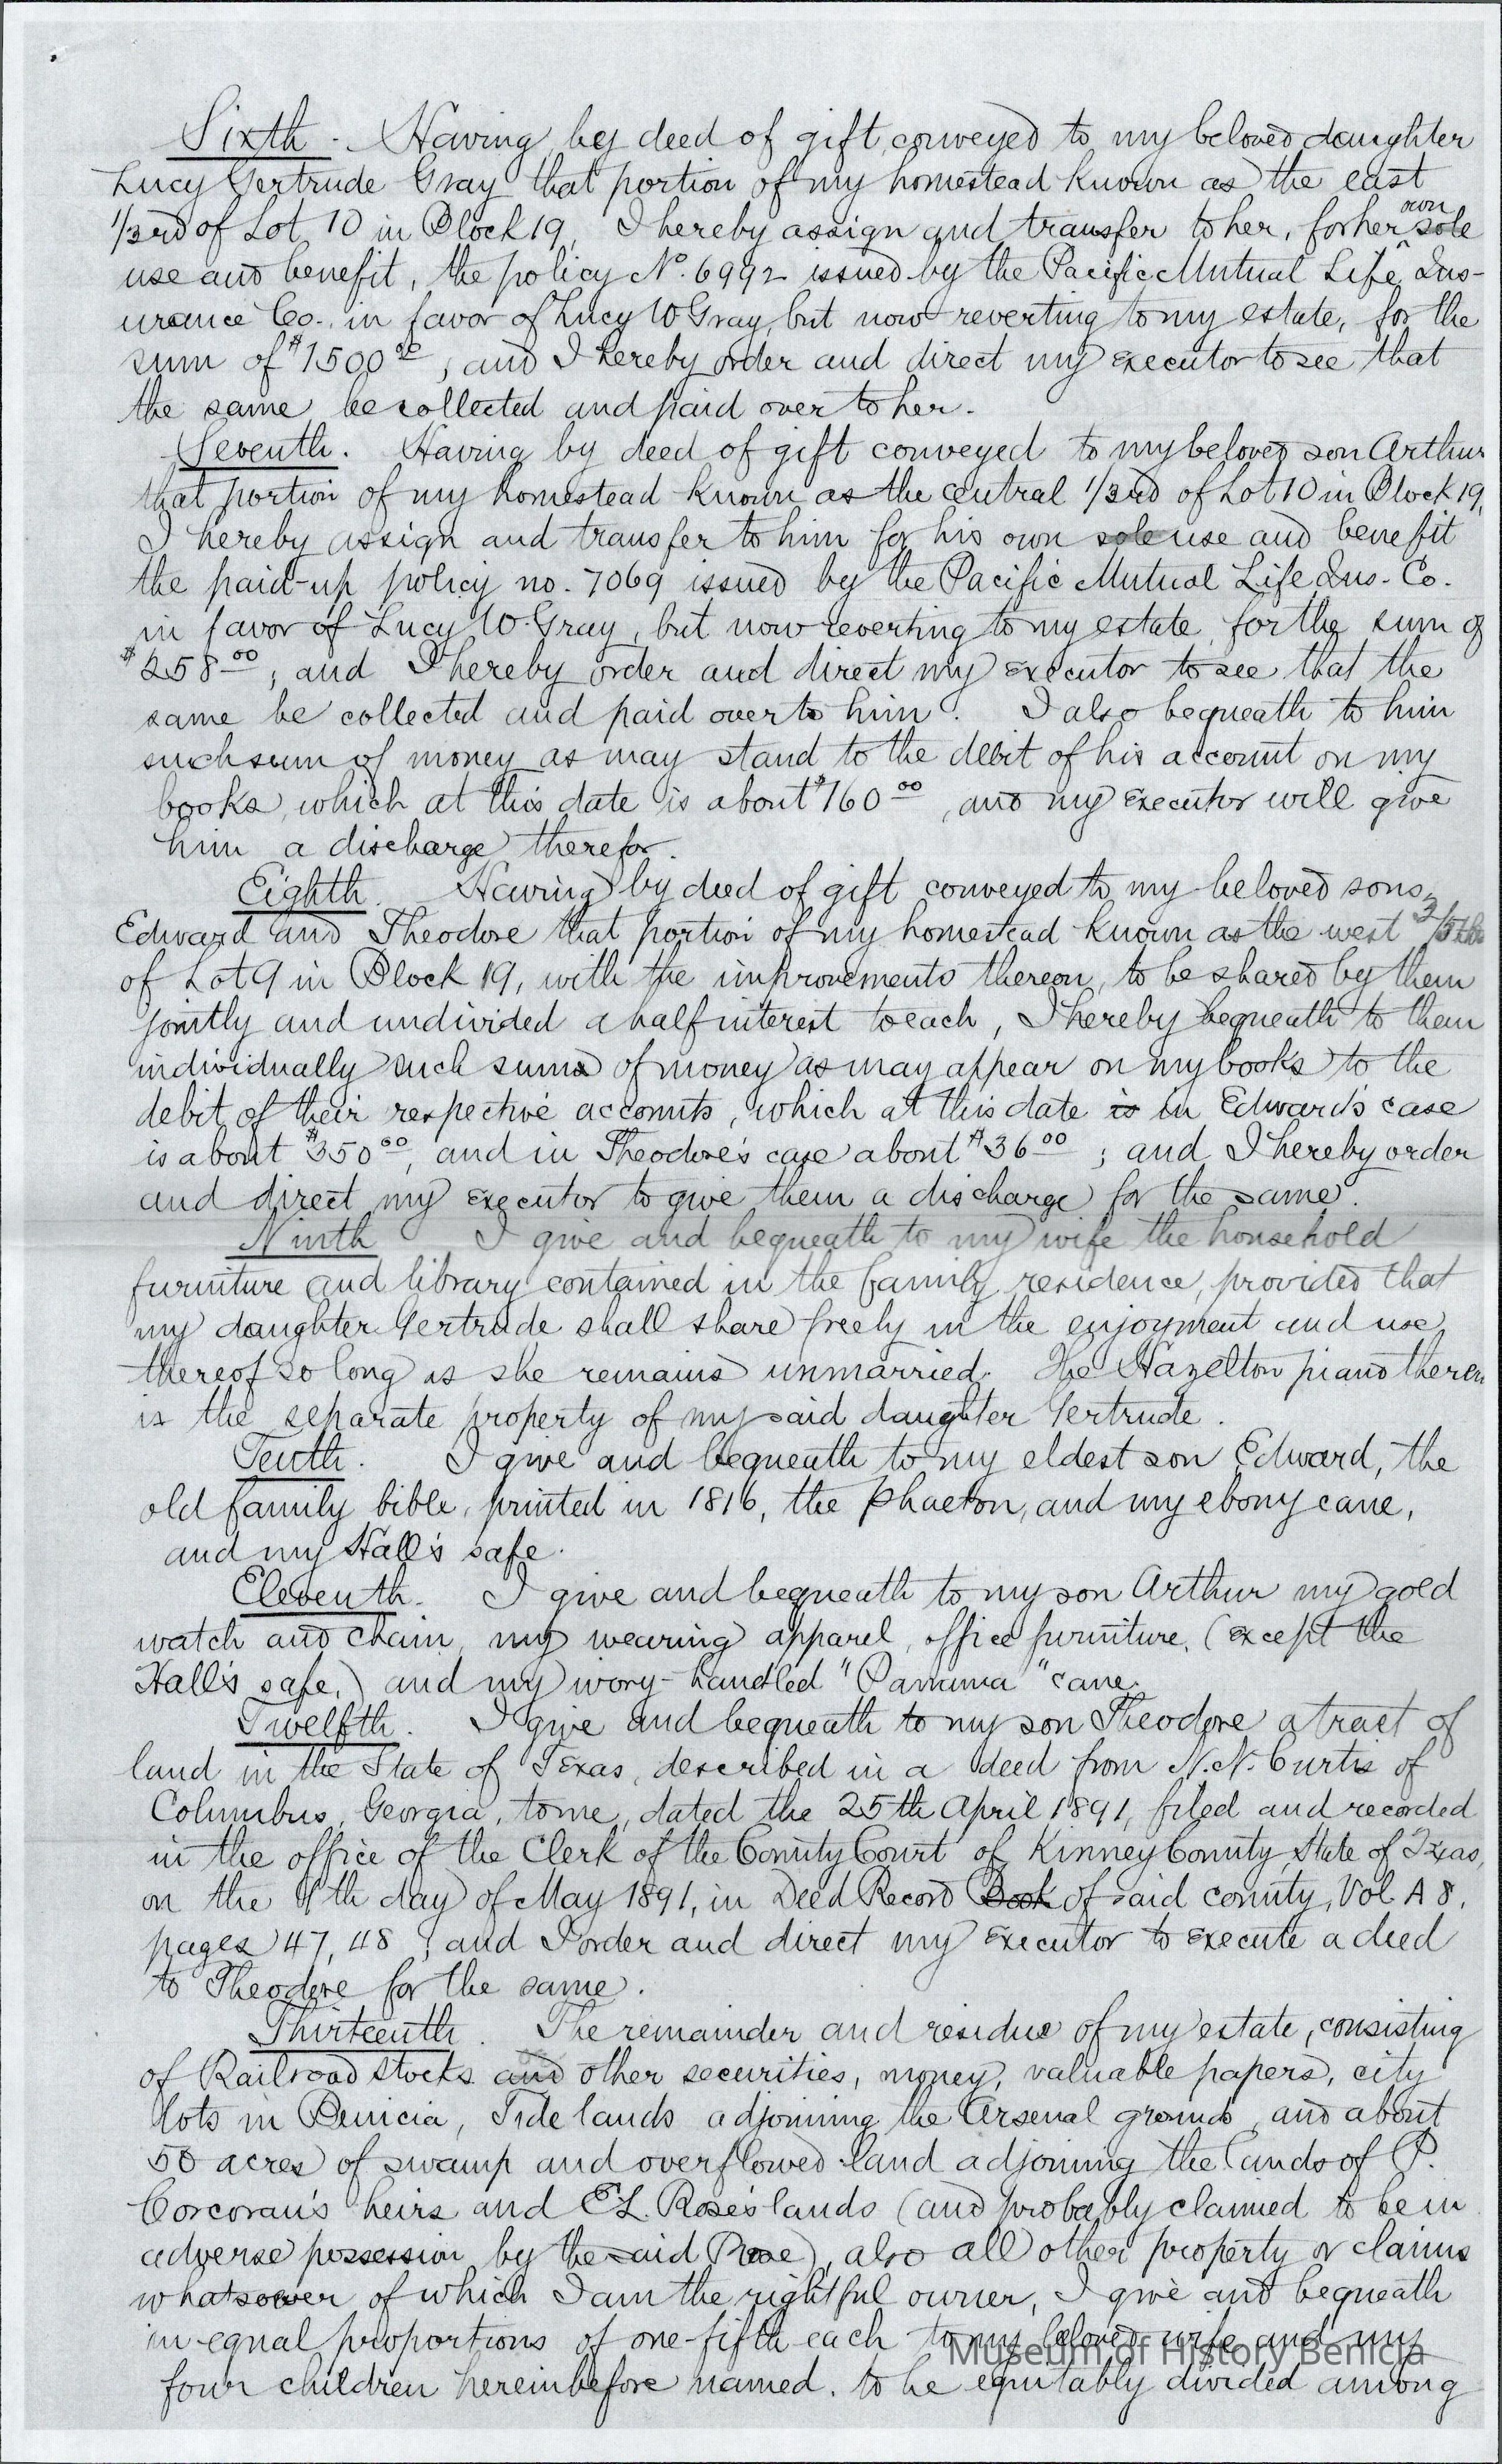 Sixth. Having by deed of gift conveyed to my beloved daughter
Lucy Gertrude Gray that portion of my homestead known as the east
1/3rd of Lot 10 in Block 19, I hereby assign and transfer to her, for her own sole
use and benefit, the policy No. 6992 issued by the Pacific Mutual Life Ins-
urance Co. in favor of Lucy W Gray, but now reverting to my estate, for the
sum of $1500.00, and I hereby order and direct my executor to see that
the same be collected and paid over to her.
Seventh. Having by deed of gift conveyed to my beloved son Arthur
that portion of my homestead known as the central 1/3rd of Lot 10 in Block 19,
I hereby assign and transfer to him for his own sole use and benefit
the paid-up policy no. 7069 issued by the Pacific Mutual Life Ins. Co.
in favor of Lucy W. Gray, but now reverting to my estate, for the sum of
$258.00; and I hereby order and direct my executor to see that the
same be collected and paid over to him. I also bequeath to him
such sum of money as may stand to the debit of his account on my
books, which at this date is about $160.00, and my executor will give
him a discharge therefor.
Eighth. Having by deed of gift conveyed to my beloved sons
Edward and Theodore that portion of my homestead known as the west 3/5ths
of Lot 9 in Block 19, with the improvements thereon, to be shared by them
jointly and undivided a half interest to each, I hereby bequeath to them
individually such sums of money as may appear on my books to the
debit of their respective accounts, which at this date is in Edward's case
is about $350.00, and in Theodore's case about $36.00; and I hereby order
and direct my executor to give them a discharge for the same.
Ninth I give and bequeath to my wife the household
furniture and library contained in the family residence, provided that
my daughter Gertrude shall share freely in the enjoyment and use
thereof so long as she remains unmarried. The Hazelton piano therein
is the separate property of my said daughter Gertrude.
Tenth. I give and bequeath to my eldest son Edward, the
old family bible, printed in 1816, the phaeton, and my ebony cane,
and my Hall's safe.
Eleventh. I give and bequeath to my son Arthur my gold
watch and chain, my wearing apparel, office furniture, (except the
Hall's safe,) and my ivory-handled "Panama" cane.
Twelfth. I give and bequeath to my son Theodore a tract of
land in the State of Texas, described in a deed from N. N. Curtis of
Columbus, Georgia, to me, dated the 25th April 1891, filed and recorded
in the office of the Clerk of the County Court of Kinney County, State of Texas,
on the day of May 1891, in Deed Record Book of said county, Vol A 8,
pages 47, 48; and I order and direct my executor to execute a deed
to Theodore for the same.
Thirteenth. The remainder and residue of my estate, consisting
of Railroad stocks and other securities, money, valuable papers, city
lots in Benicia, Tide lands adjoining the Arsenal grounds, and about
50 acres of swamp and overflowed land adjoining the lands of P.
Corcoran's heirs and E L. Rose's lands (and probably claimed to be in
adverse possession by the said Rose), also all other property or claims
whatsoever of which I am the rightful owner, I give and bequeath
in equal proportions of one-fifth each to my beloved wife and my
four children hereinbefore named, to be equitably divided among
Museum of History Benicia